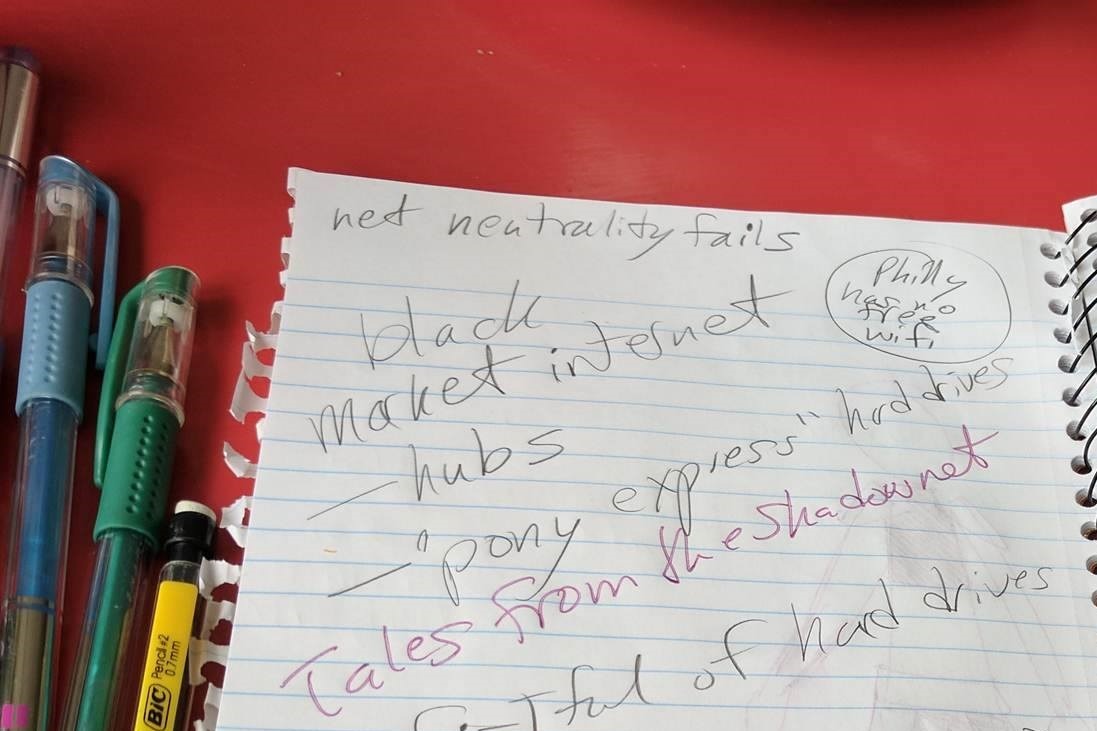 net neutrality fails
Philly
has no
free
wifi
black
market internet
– hubs
– "pony express" hard drives
Tales from the Shadownet
ful of hard drives
BIC Pencil #2
0.7mm